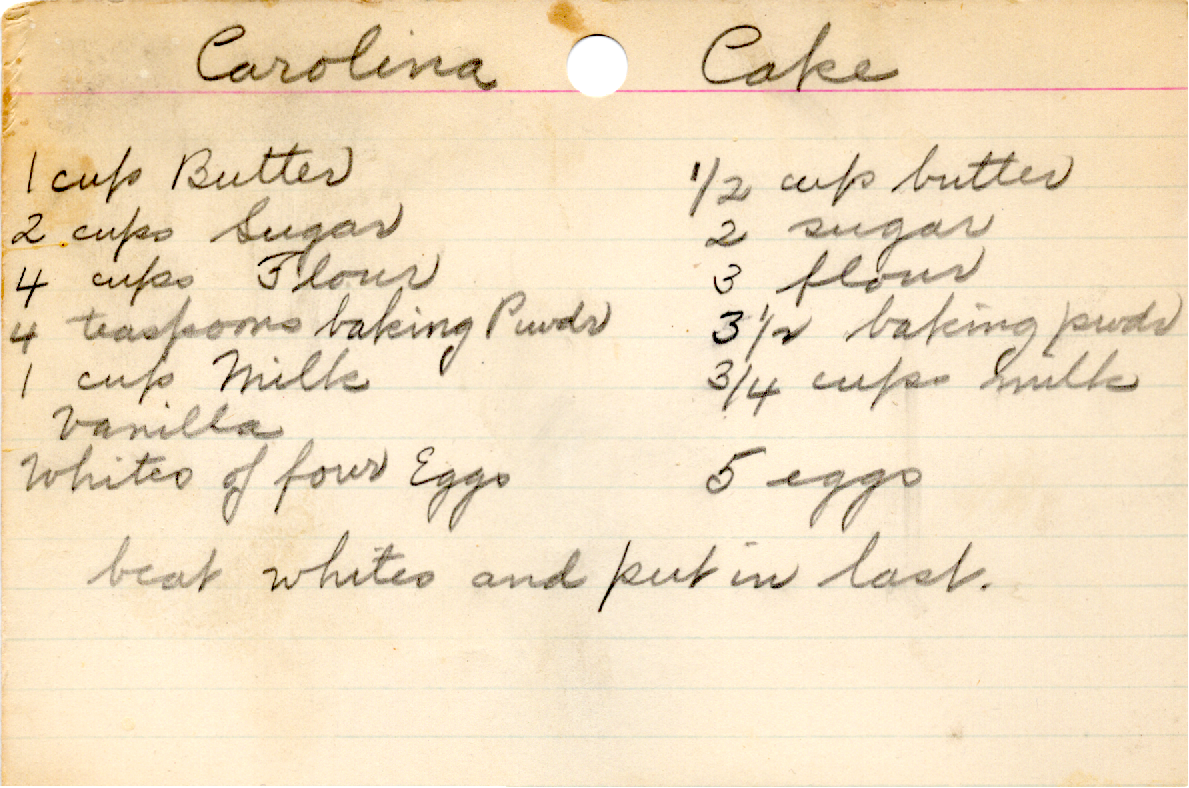 Carolina Cake
1 cup Butter 1/2 cup butter
2 cups Sugar 2 sugar
4 cups Flour 3 flour
4 teaspoons baking Pwdr 3 1/2 baking pwdr
1 cup Milk 3/4 cups milk
Vanilla
Whites of four Eggs 5 eggs
beat whites and put in last.